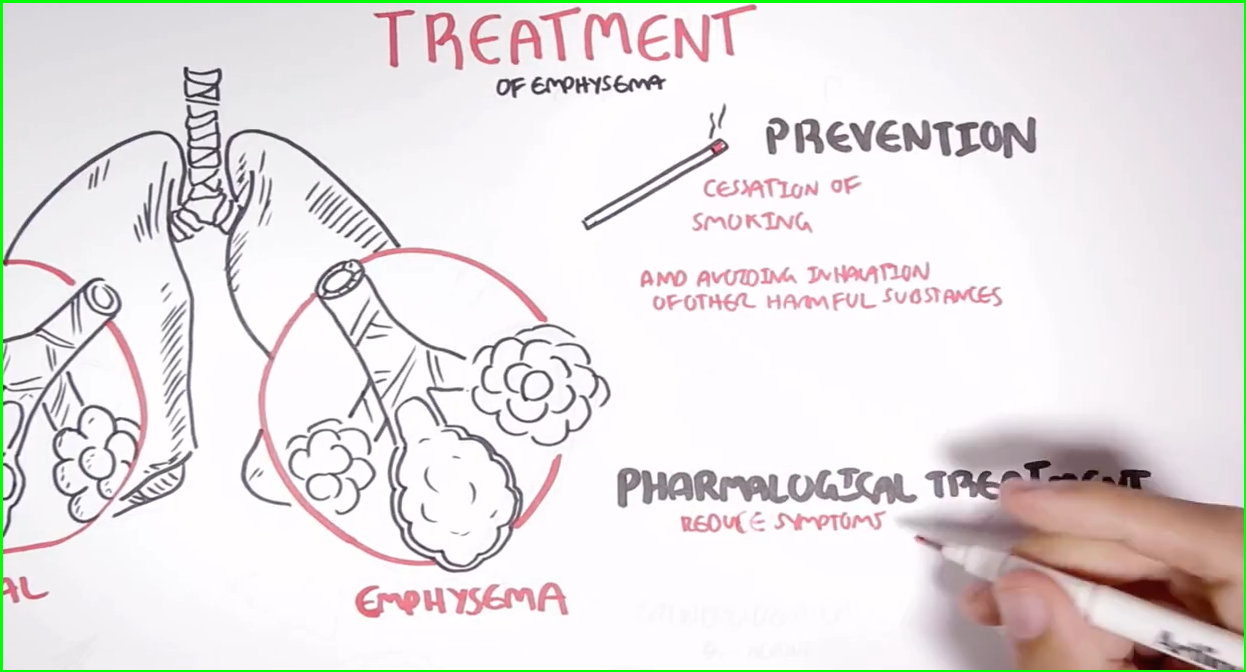 TREATMENT
OF EMPHYSEMA
PREVENTION
CESSATION OF
SMOKING
AND AVOIDING INHALATION
OF OTHER HARMFUL SUBSTANCES
PHARMALOGICAL TREATMENT
REDUCE SYMPTOMS
AL
EMPHYSEMA